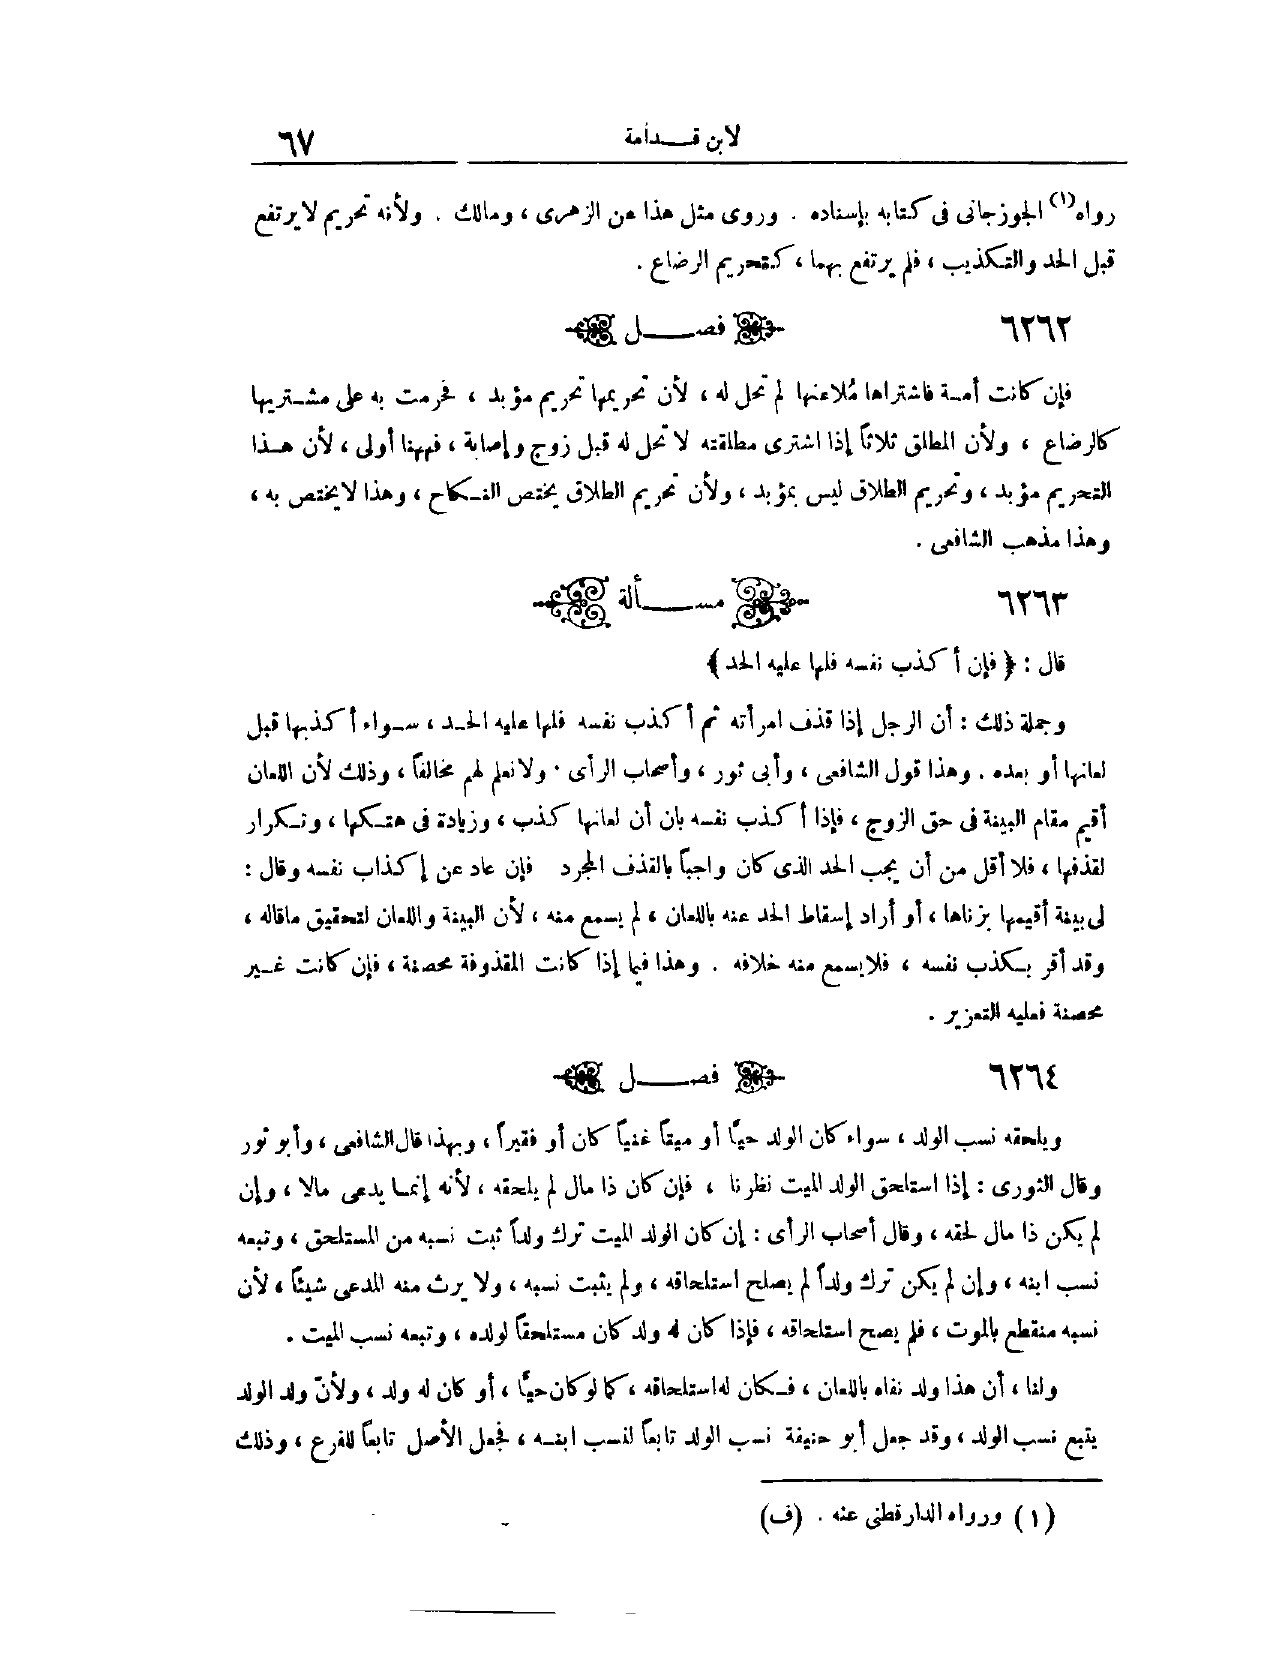 لابن قـــدامة ٦٧
رواه(١) الجوزجانى فى كتابه بإسناده . وروى مثل هذا عن الزهرى ، ومالك . ولأنه تحريم لا يرتفع
قبل الحد والتكذيب ، فلم يرتفع بهما ، كتحريم الرضاع .
٦٢٦٢ فصــــل
فإن كانت أمـة فاشتراها مُلاعنها لم تحل له ، لأن تحريمها تحريم مؤبد ، فحرمت به على مشـتريها
كالرضاع ، ولأن المطلق ثلاثاً إذا اشترى مطلقته لا تحل له قبل زوج وإصابة ، فههنا أولى ، لأن هـذا
التحريم مؤبد ، وتحريم الطلاق ليس بمؤبد ، ولأن تحريم الطلاق يختص النـكاح ، وهذا لا يختص به ،
وهذا مذهب الشافعى .
٦٢٦٣ مســـألة
قال : ﴿ فإن أكذب نفسه فلها عليه الحد ﴾
وجملة ذلك : أن الرجل إذا قذف امرأته ثم أكذب نفسه فلها عليه الحـد ، سـواء أكذبها قبل
لعانها أو بعده . وهذا قول الشافعى ، وأبى ثور ، وأصحاب الرأى . ولا نعلم لهم مخالفاً ، وذلك لأن اللعان
أقيم مقام البينة فى حق الزوج ، فإذا أكذب نفسه بان أن لعانها كذب ، وزيادة فى هتـكها ، وتـكرار
لقذفها ، فلا أقل من أن يجب الحد الذى كان واجباً بالقذف المجرد فإن عاد عن إكذاب نفسه وقال :
لى بينة أقيمها بزناها ، أو أراد إسقاط الحد عنه باللعان ، لم يسمع منه ، لأن البينة واللعان لتحقيق ماقاله ،
وقد أقر بـكذب نفسه ، فلا يسمع منه خلافه . وهذا فيما إذا كانت المقذوفة محصنة ، فإن كانت غـير
محصنة فعليه التعزير .
٦٢٦٤ فصــــل
ويلحقه نسب الولد ، سواء كان الولد حيًّا أو ميتاً غنياً كان أو فقيراً ، وبهذا قال الشافعى ، وأبو ثور
وقال الثورى : إذا استلحق الولد الميت نظرنا ، فإن كان ذا مال لم يلحقه ، لأنه إنمـا يدعى مالا ، وإن
لم يكن ذا مال لحقه ، وقال أصحاب الرأى : إن كان الولد الميت ترك ولداً ثبت نسبه من المستلحق ، وتبعه
نسب ابنه ، وإن لم يكن ترك ولداً لم يصلح استلحاقه ، ولم يثبت نسبه ، ولا يرث منه المدعى شيئاً ، لأن
نسبه منقطع بالموت ، فلم يصح استلحاقه ، فإذا كان له ولد كان مستلحقاً لولده ، وتبعه نسب الميت .
ولنا ، أن هذا ولد نفاه باللعان ، فـكان له استلحاقه ، كما لو كان حيًّا ، أو كان له ولد ، ولأنّ ولد الولد
يتبع نسب الولد ، وقد جعل أبو حنيفة نسـب الولد تابعاً لنسب ابنـه ، فجعل الأصل تابعاً للفرع ، وذلك
(١) ورواه الدارقطنى عنه . (ف)